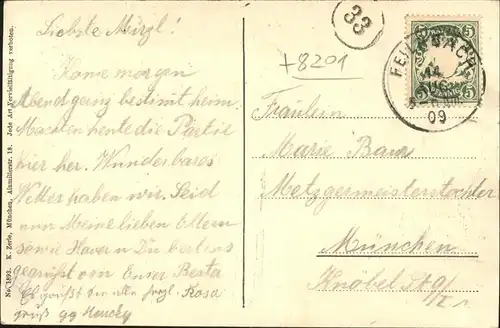 Liebste Mirzl!
Kome morgen
Abend ganz bestimt heim
Machten heute die Partie
hier her. Wunderbares
Wetter haben wir. Seid
nun Meine lieben Eltern
sowie Xaver u Du bestens
gegrüßt von Enser Resta
Es grüßt
Rosa
gruß
33
+8201
5
5
FEL BACH
14
AUG
09
Fräulein
Marie Baur
Metzgermeisterstochter
München
Knöbel Str 9/
No. 1892. K. Zerle, München, Ainmillerstr. 18. Jede Art Vervielfältigung verboten.